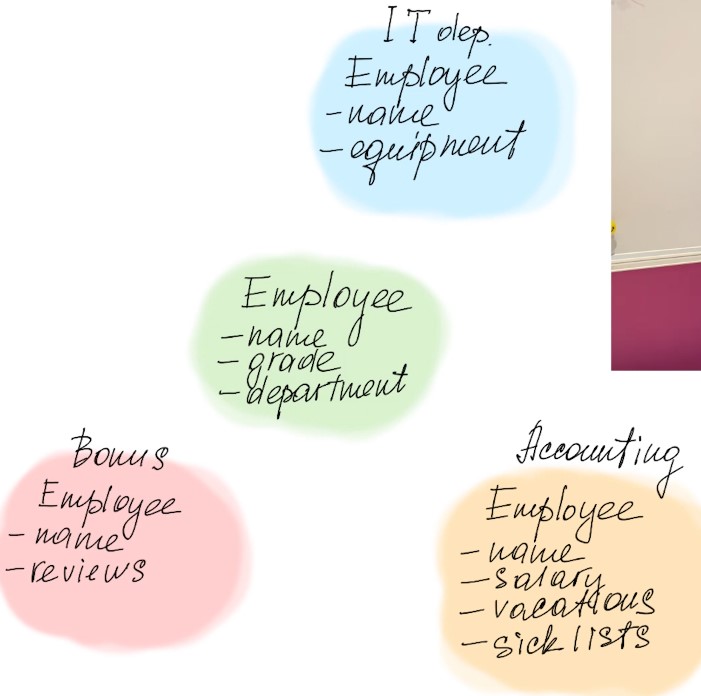 IT dep.
Employee
- name
- equipment
Employee
- name
- grade
- department
Bonus
Employee
- name
- reviews
Accounting
Employee
- name
- salary
- vacations
- sick lists